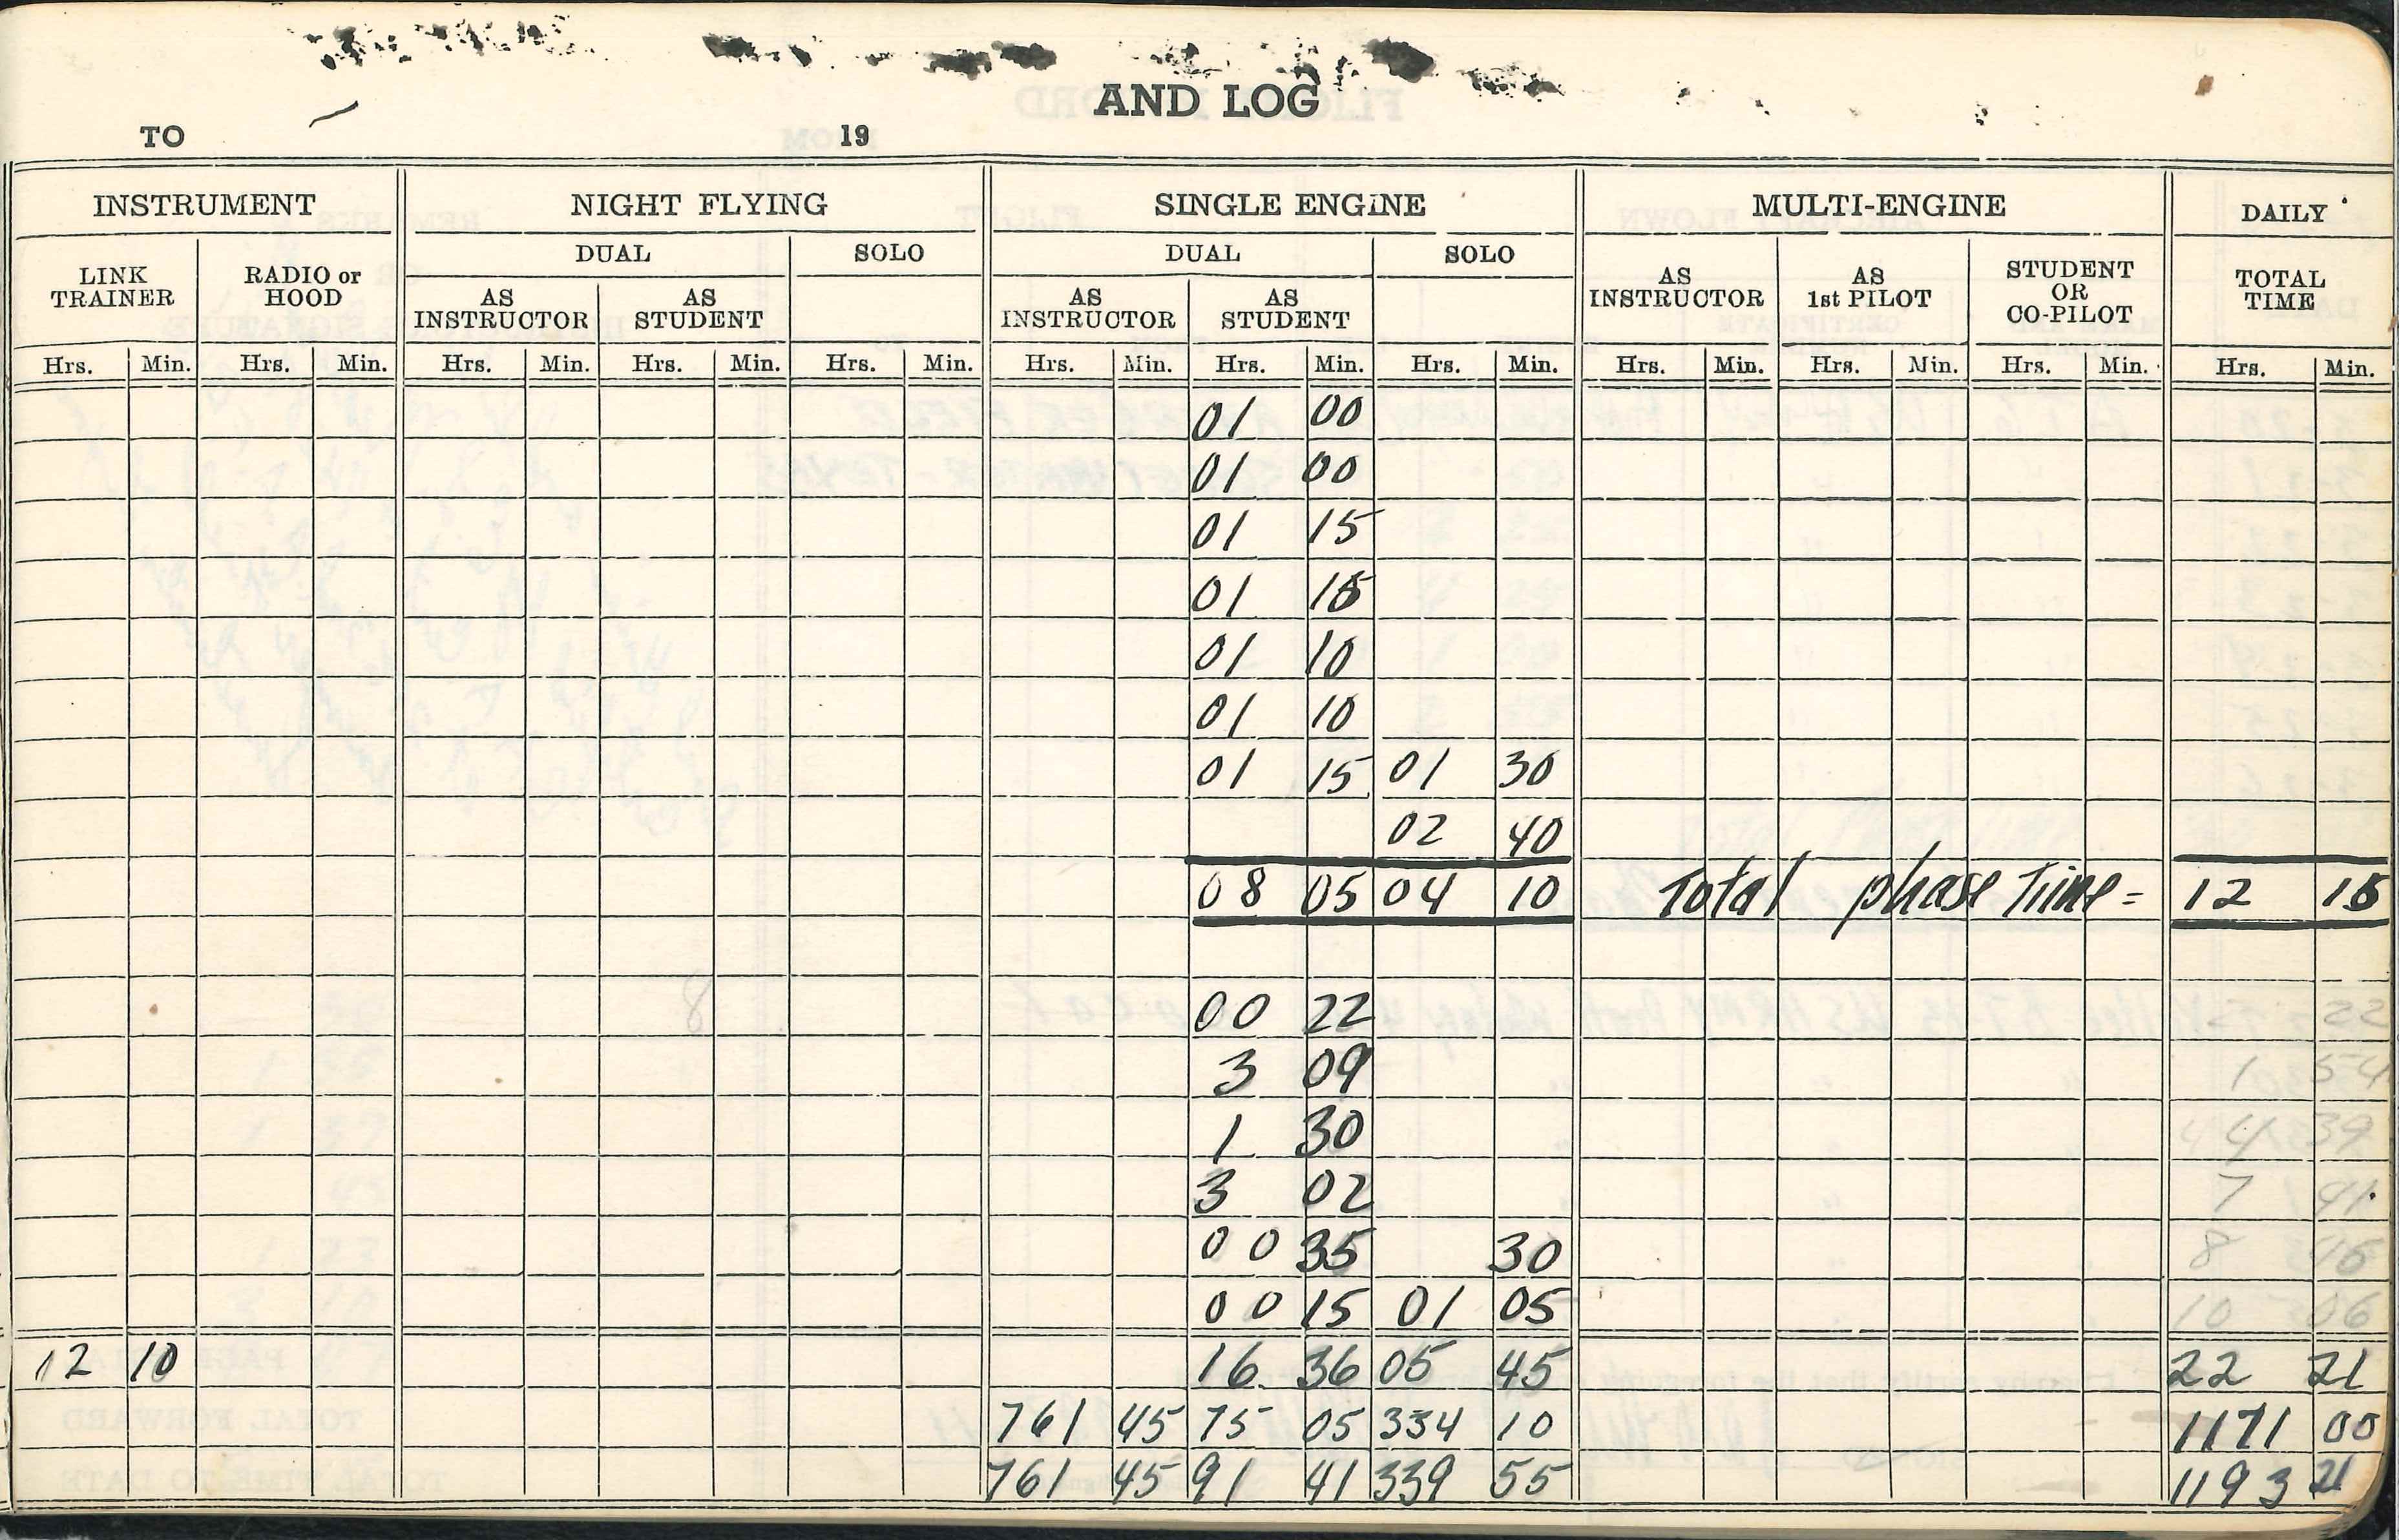 AND LOG
TO 19
INSTRUMENT NIGHT FLYING SINGLE ENGINE MULTI-ENGINE DAILY
DUAL SOLO DUAL SOLO
LINK TRAINER RADIO or HOOD AS INSTRUCTOR AS STUDENT AS INSTRUCTOR AS STUDENT AS INSTRUCTOR AS 1st PILOT STUDENT OR CO-PILOT TOTAL TIME
Hrs. Min. Hrs. Min. Hrs. Min. Hrs. Min. Hrs. Min. Hrs. Min. Hrs. Min. Hrs. Min. Hrs. Min. Hrs. Min. Hrs. Min. Hrs. Min.
01 00
01 00
01 15
01 15
01 10
01 10
01 15 01 30
02 40
08 05 04 10 Total phase Time = 12 15
00 22
3 09
1 30
3 02
00 35 30
00 15 01 05
12 10 16 36 05 45 22 21
761 45 75 05 334 10 1171 00
761 45 91 41 339 55 1193 21